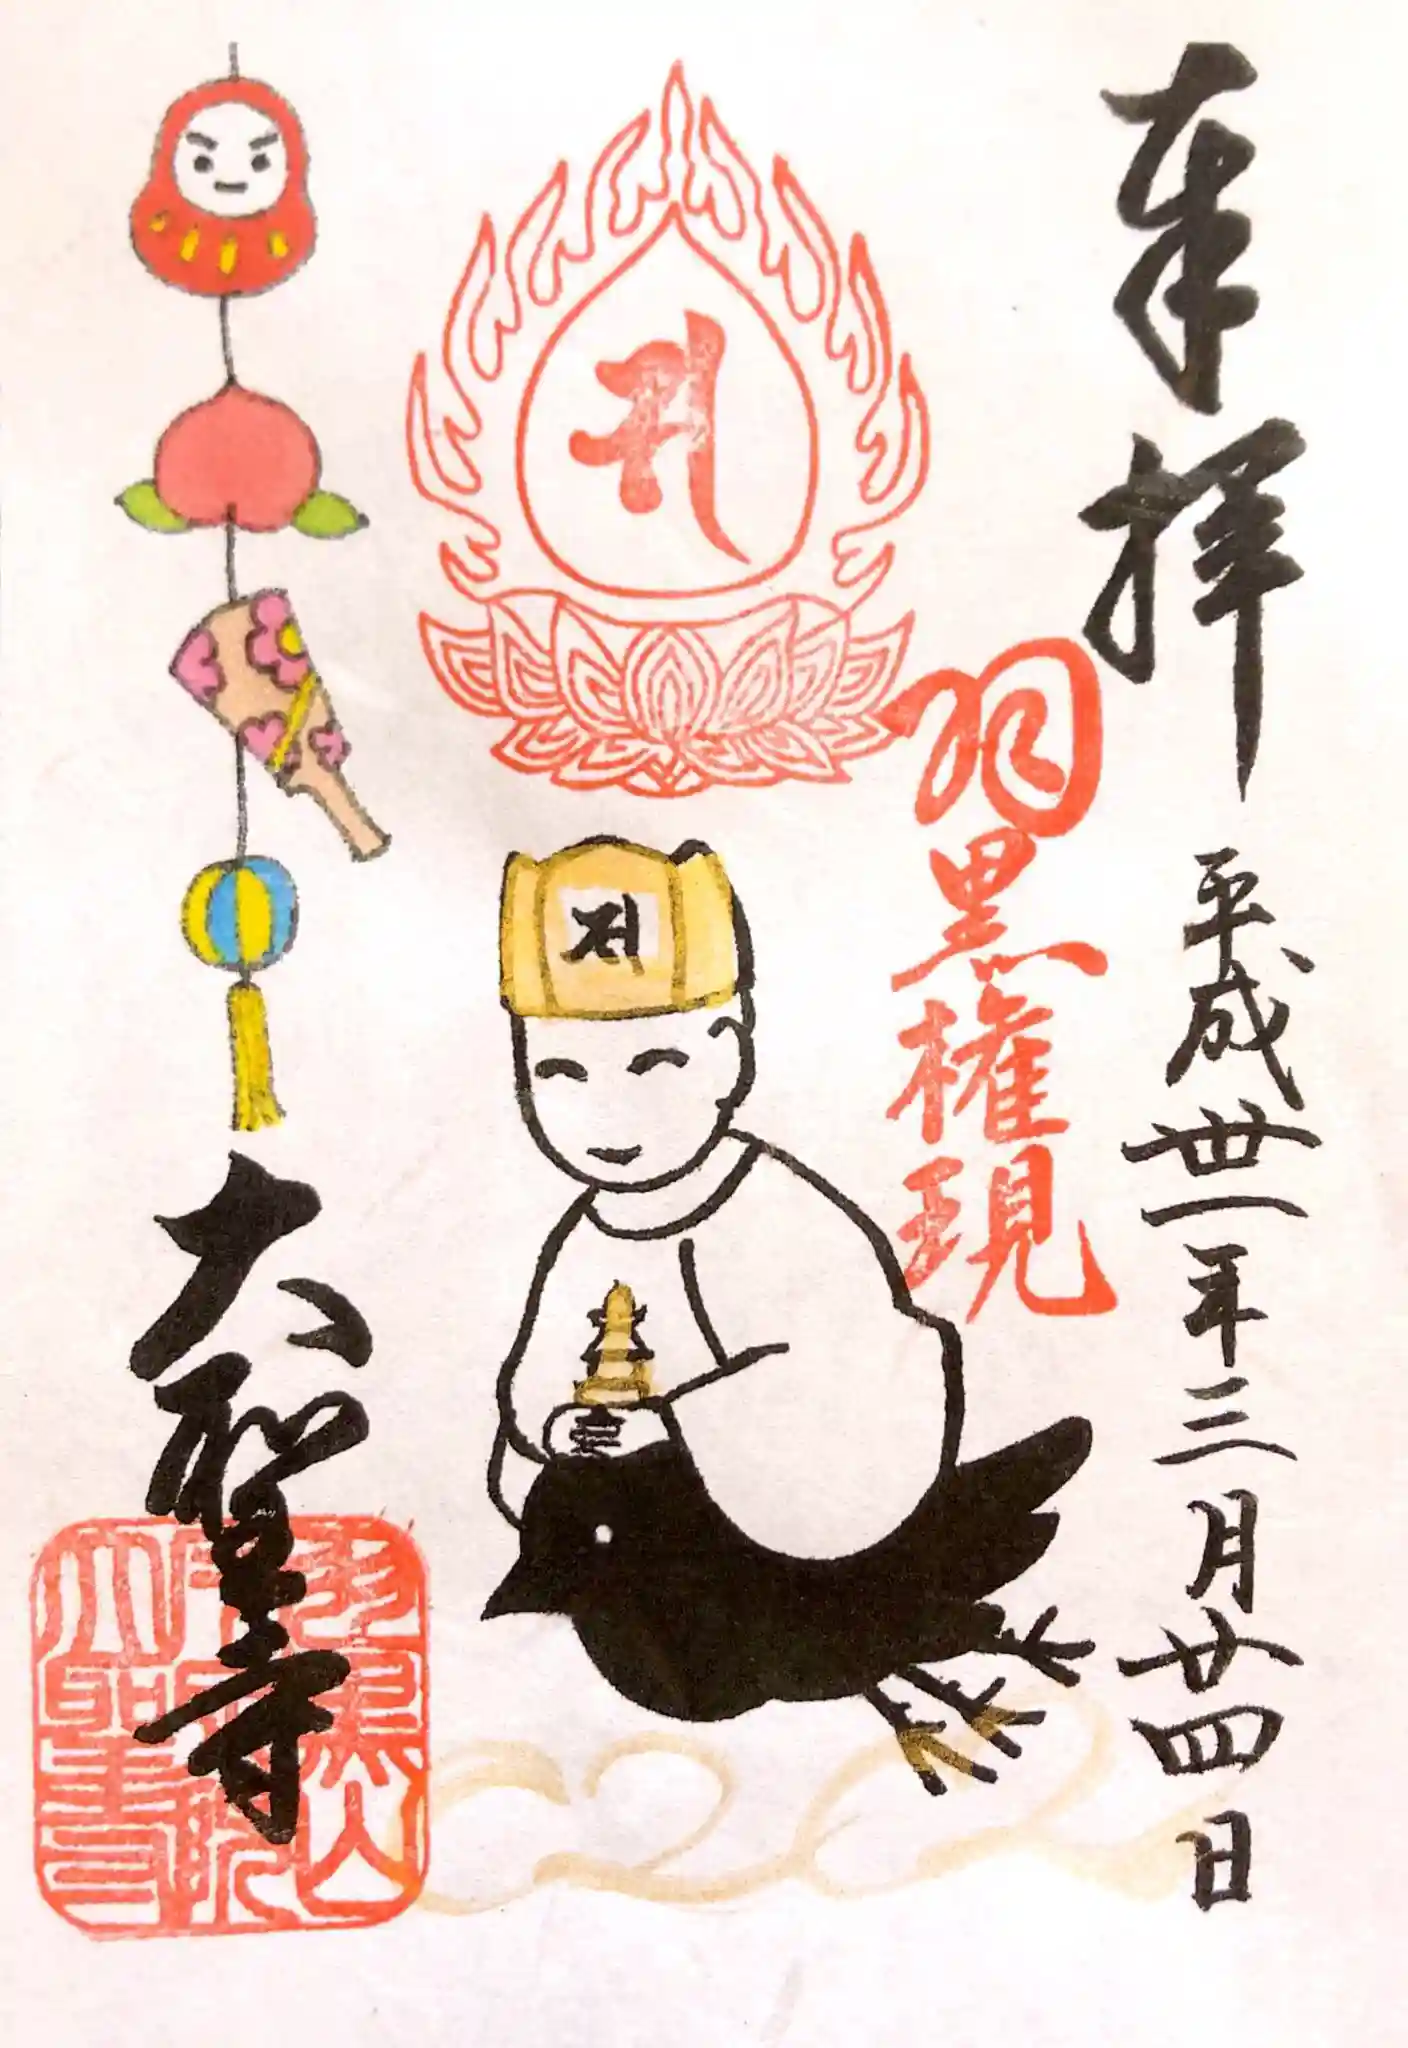 奉拝
平成丗一年三月廿四日
羽黒権現
大聖寺